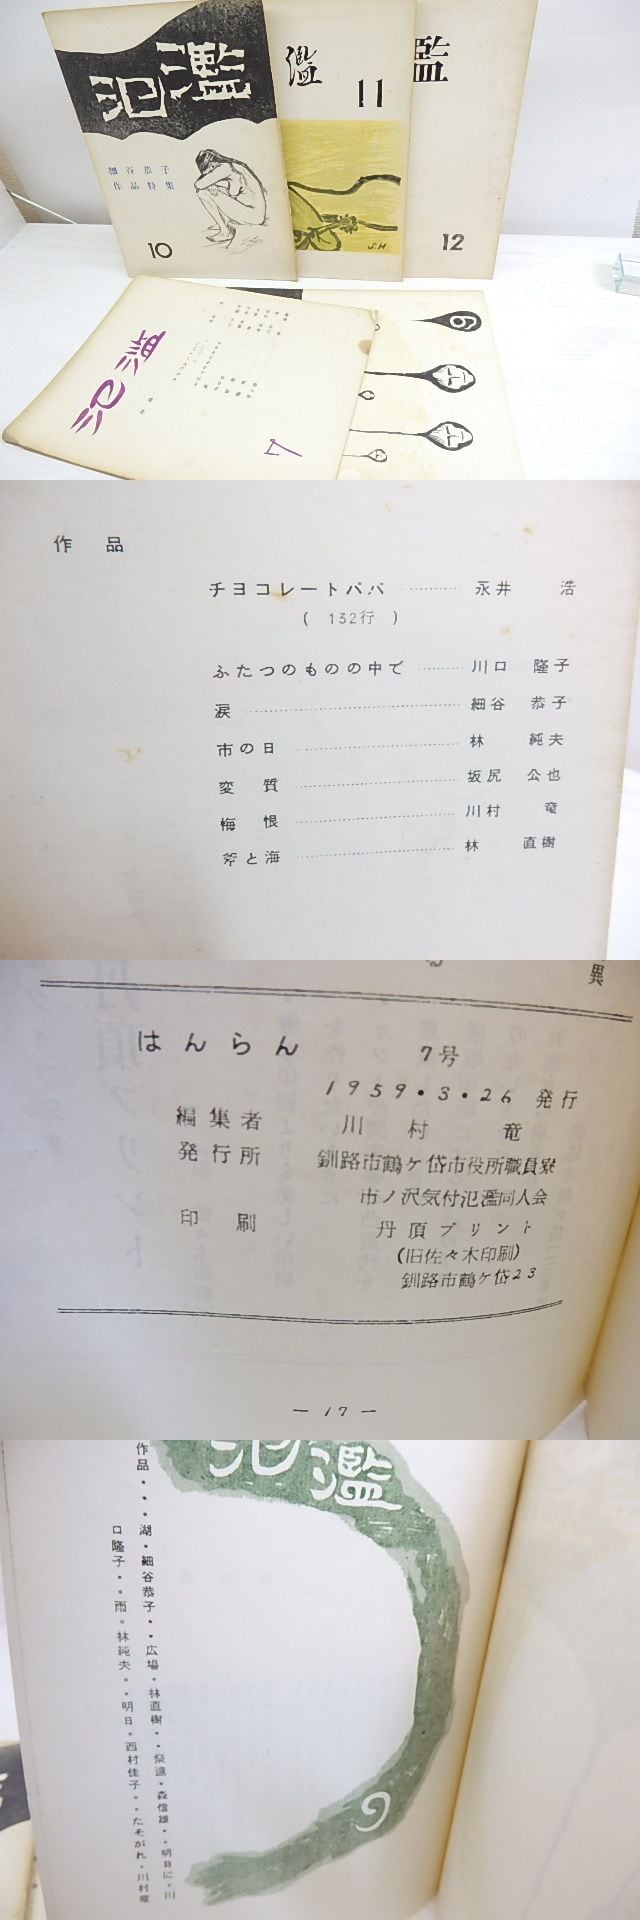 氾濫
細谷恭子
作品特集
10
濫
11
J.H
濫
12
氾濫
7
6
作品
チヨコレートパパ ………… 永井 浩
( 132行 )
ふたつのものの中で ……… 川口 隆子
涙 ……………………… 細谷 恭子
市の日 ……………………… 林 純夫
変質 ……………………… 坂尻 公也
悔恨 ……………………… 川村 竜
斧と海 ……………………… 林 直樹
異
はんらん 7号
1959・3・26 発行
編集者 川村竜
発行所 釧路市鶴ケ岱市役所職員寮
市ノ沢気付氾濫同人会
印刷 丹頂プリント
(旧佐々木印刷)
釧路市鶴ケ岱23
— 17 —
氾濫
作品・・・湖・細谷恭子・・広場・林直樹・・祭遠・森信雄・・明日に・川
口隆子・・雨・林純夫・・明日・西村佳子・・たそがれ・川村竜
9